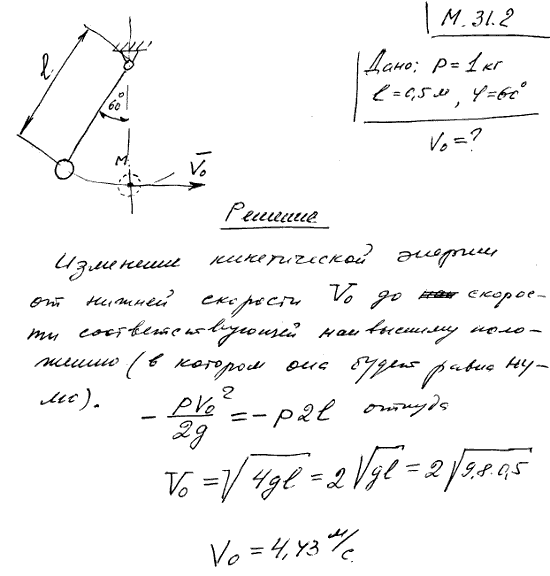 М. 31.2
Дано: P = 1 кг
ℓ = 0,5 м, φ = 60°
V₀ = ?
ℓ
60°
M
V̄₀
Решение
Изменение кинетической энергии
от нижней скорости V₀ до скорос-
ти соответствующей наивысшему поло-
жению (в котором она будет равна ну-
лю).
- PV₀²/2g = - P2ℓ откуда
V₀ = √4gℓ = 2√gℓ = 2√9,8·0,5
V₀ = 4,43 м/с.